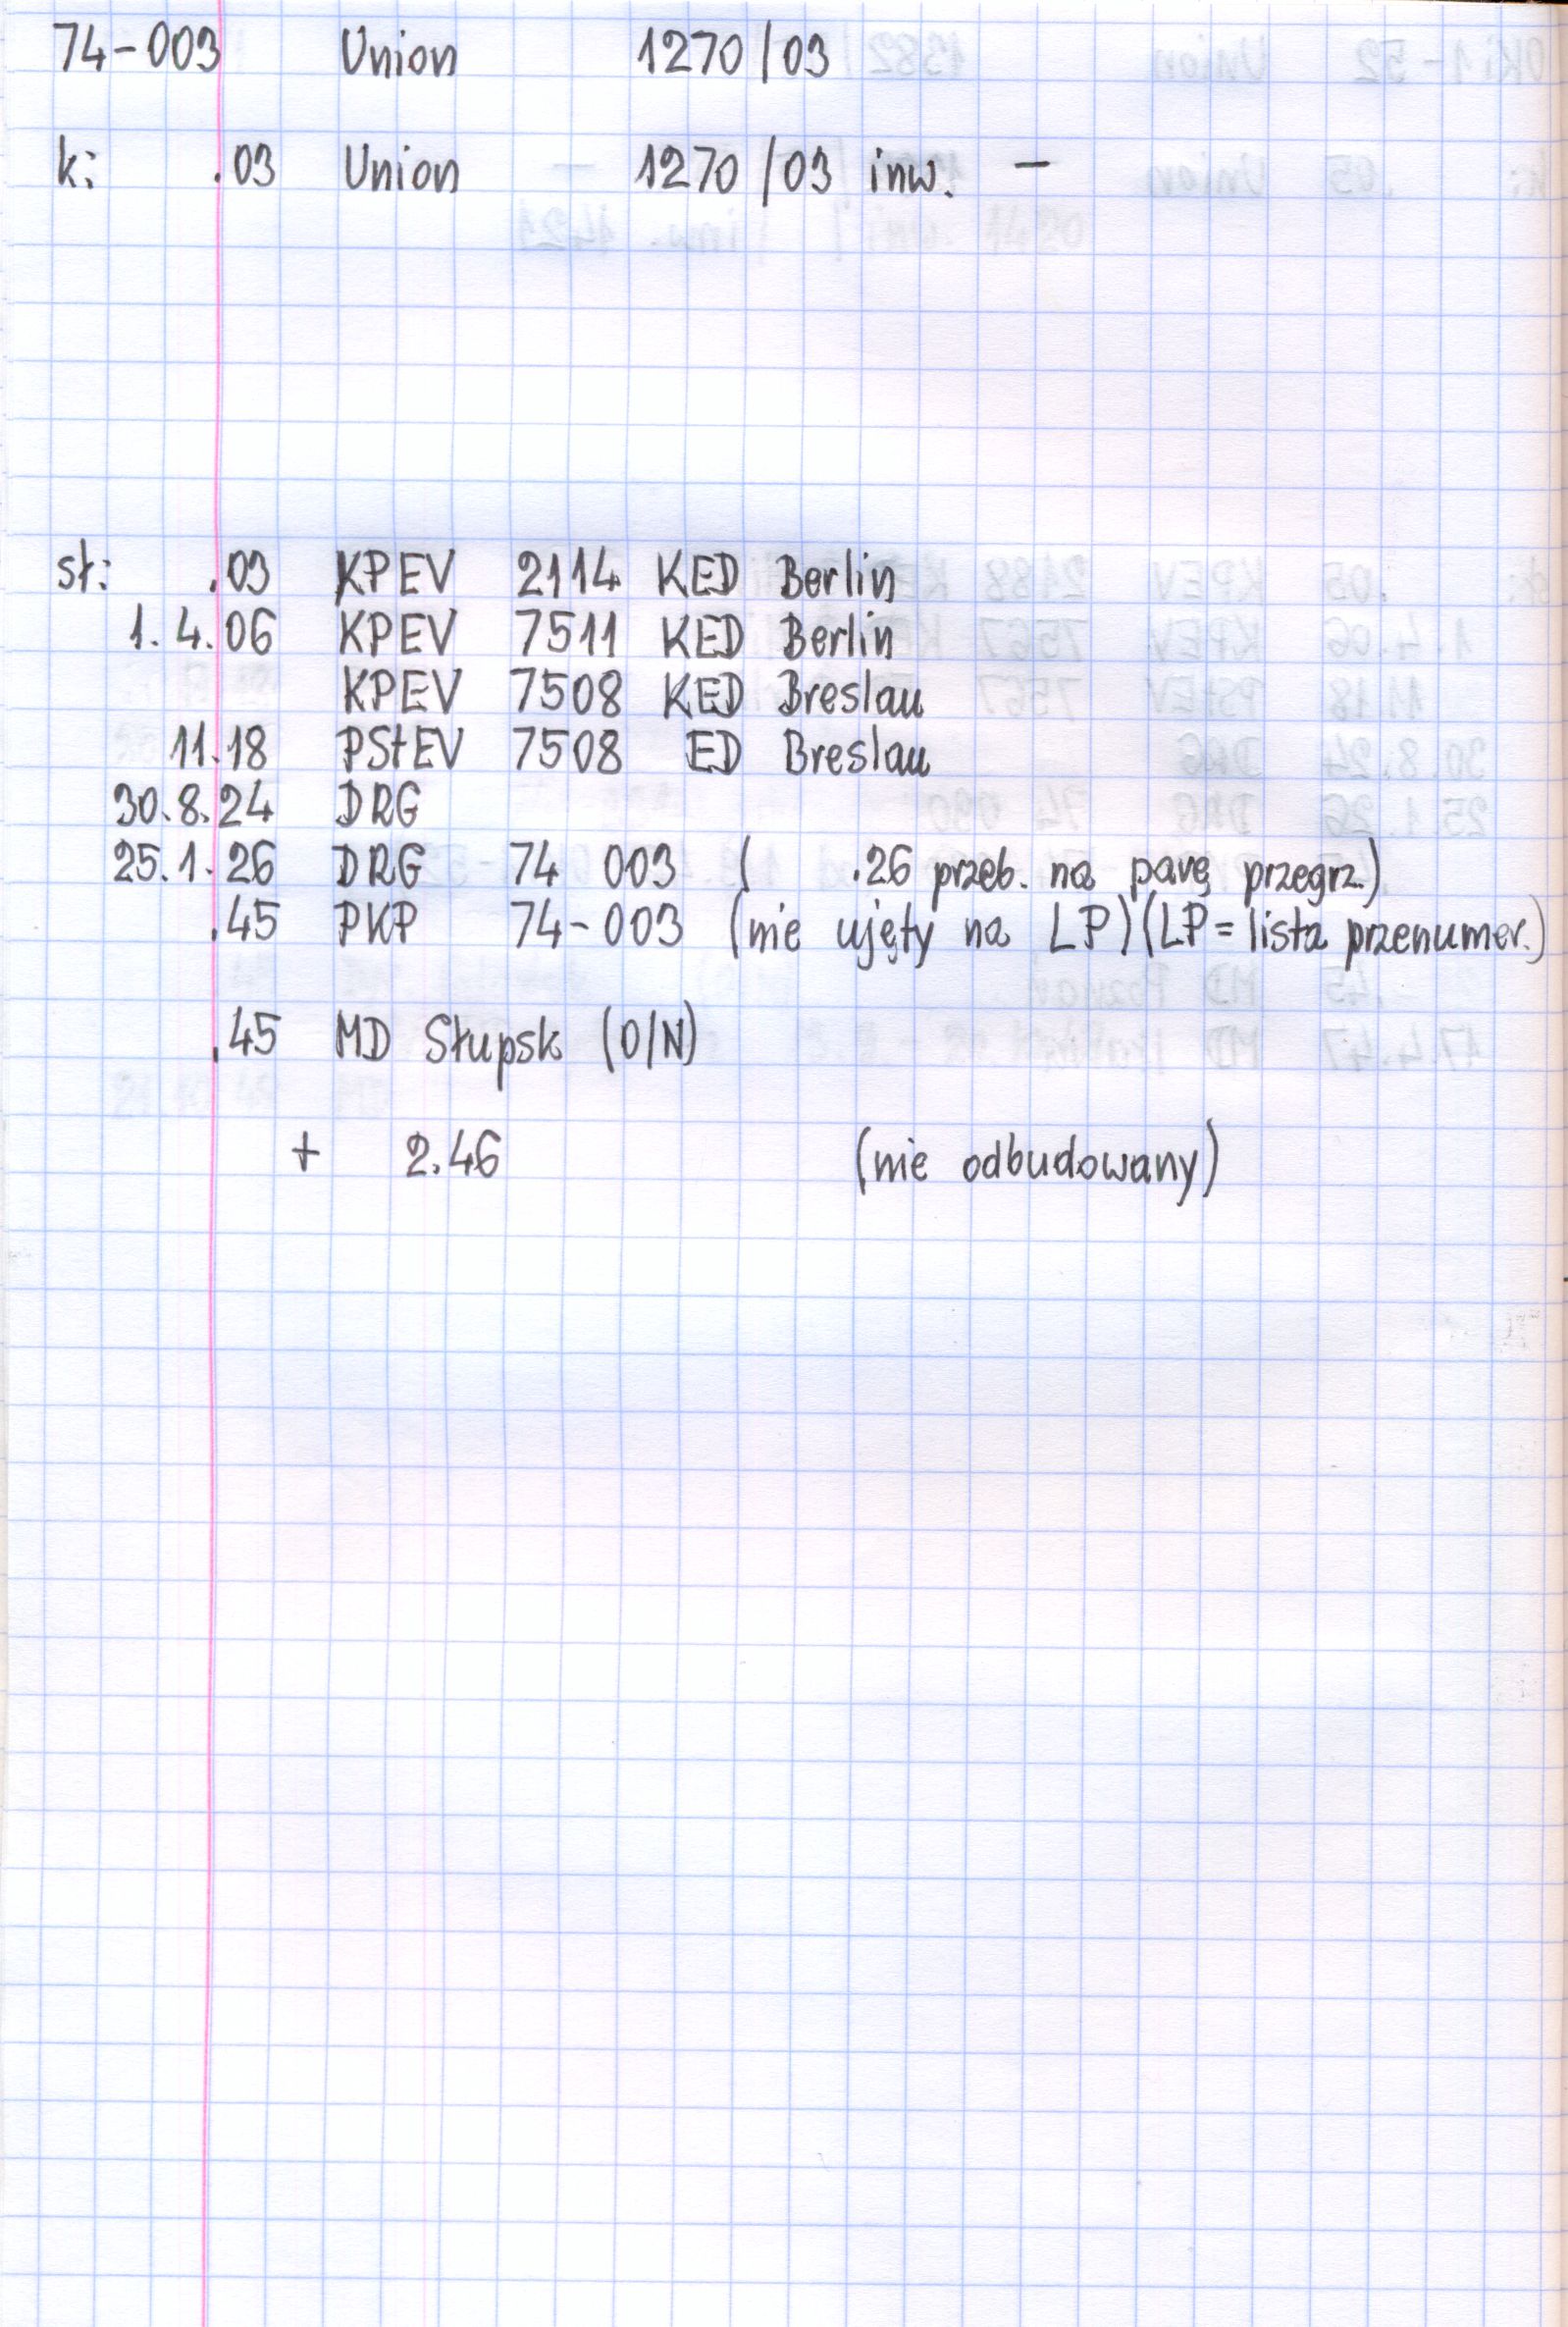 74-003 Union 1270/03
k: .03 Union 1270/03 inw. –
sł: .03 KPEV 2114 KED Berlin
1.4.06 KPEV 7511 KED Berlin
KPEV 7508 KED Breslau
11.18 PStEV 7508 ED Breslau
30.8.24 DRG
25.1.26 DRG 74 003 ( .26 przeb. na parę przegrz.)
.45 PKP 74-003 (nie ujęty na LP) (LP = lista przenumer.)
.45 MD Słupsk (O/N)
+ 2.46 (nie odbudowany)